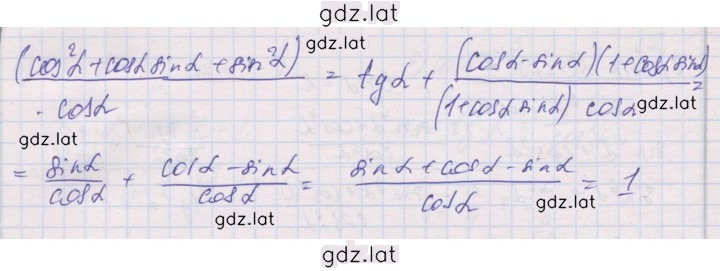 gdz.lat
(cos²α+cosα sinα+sin²α) / · cosα = tgα + (cosα-sinα)(1+cosα sinα) / (1+cosα sinα) cosα =
gdz.lat
gdz.lat
gdz.lat
= sinα/cosα + cosα-sinα/cosα = sinα+cosα-sinα/cosα = 1
gdz.lat
gdz.lat
gdz.lat